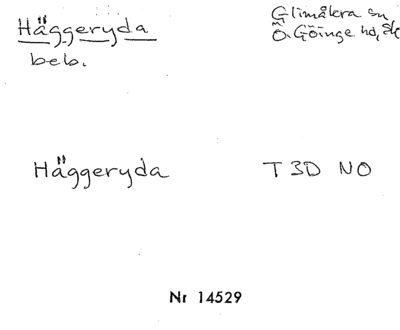 Häggeryda
Glimåkra sn
beb.
Ö. Göinge hd, Sk
Häggeryda
T 3D NO
Nr 14529